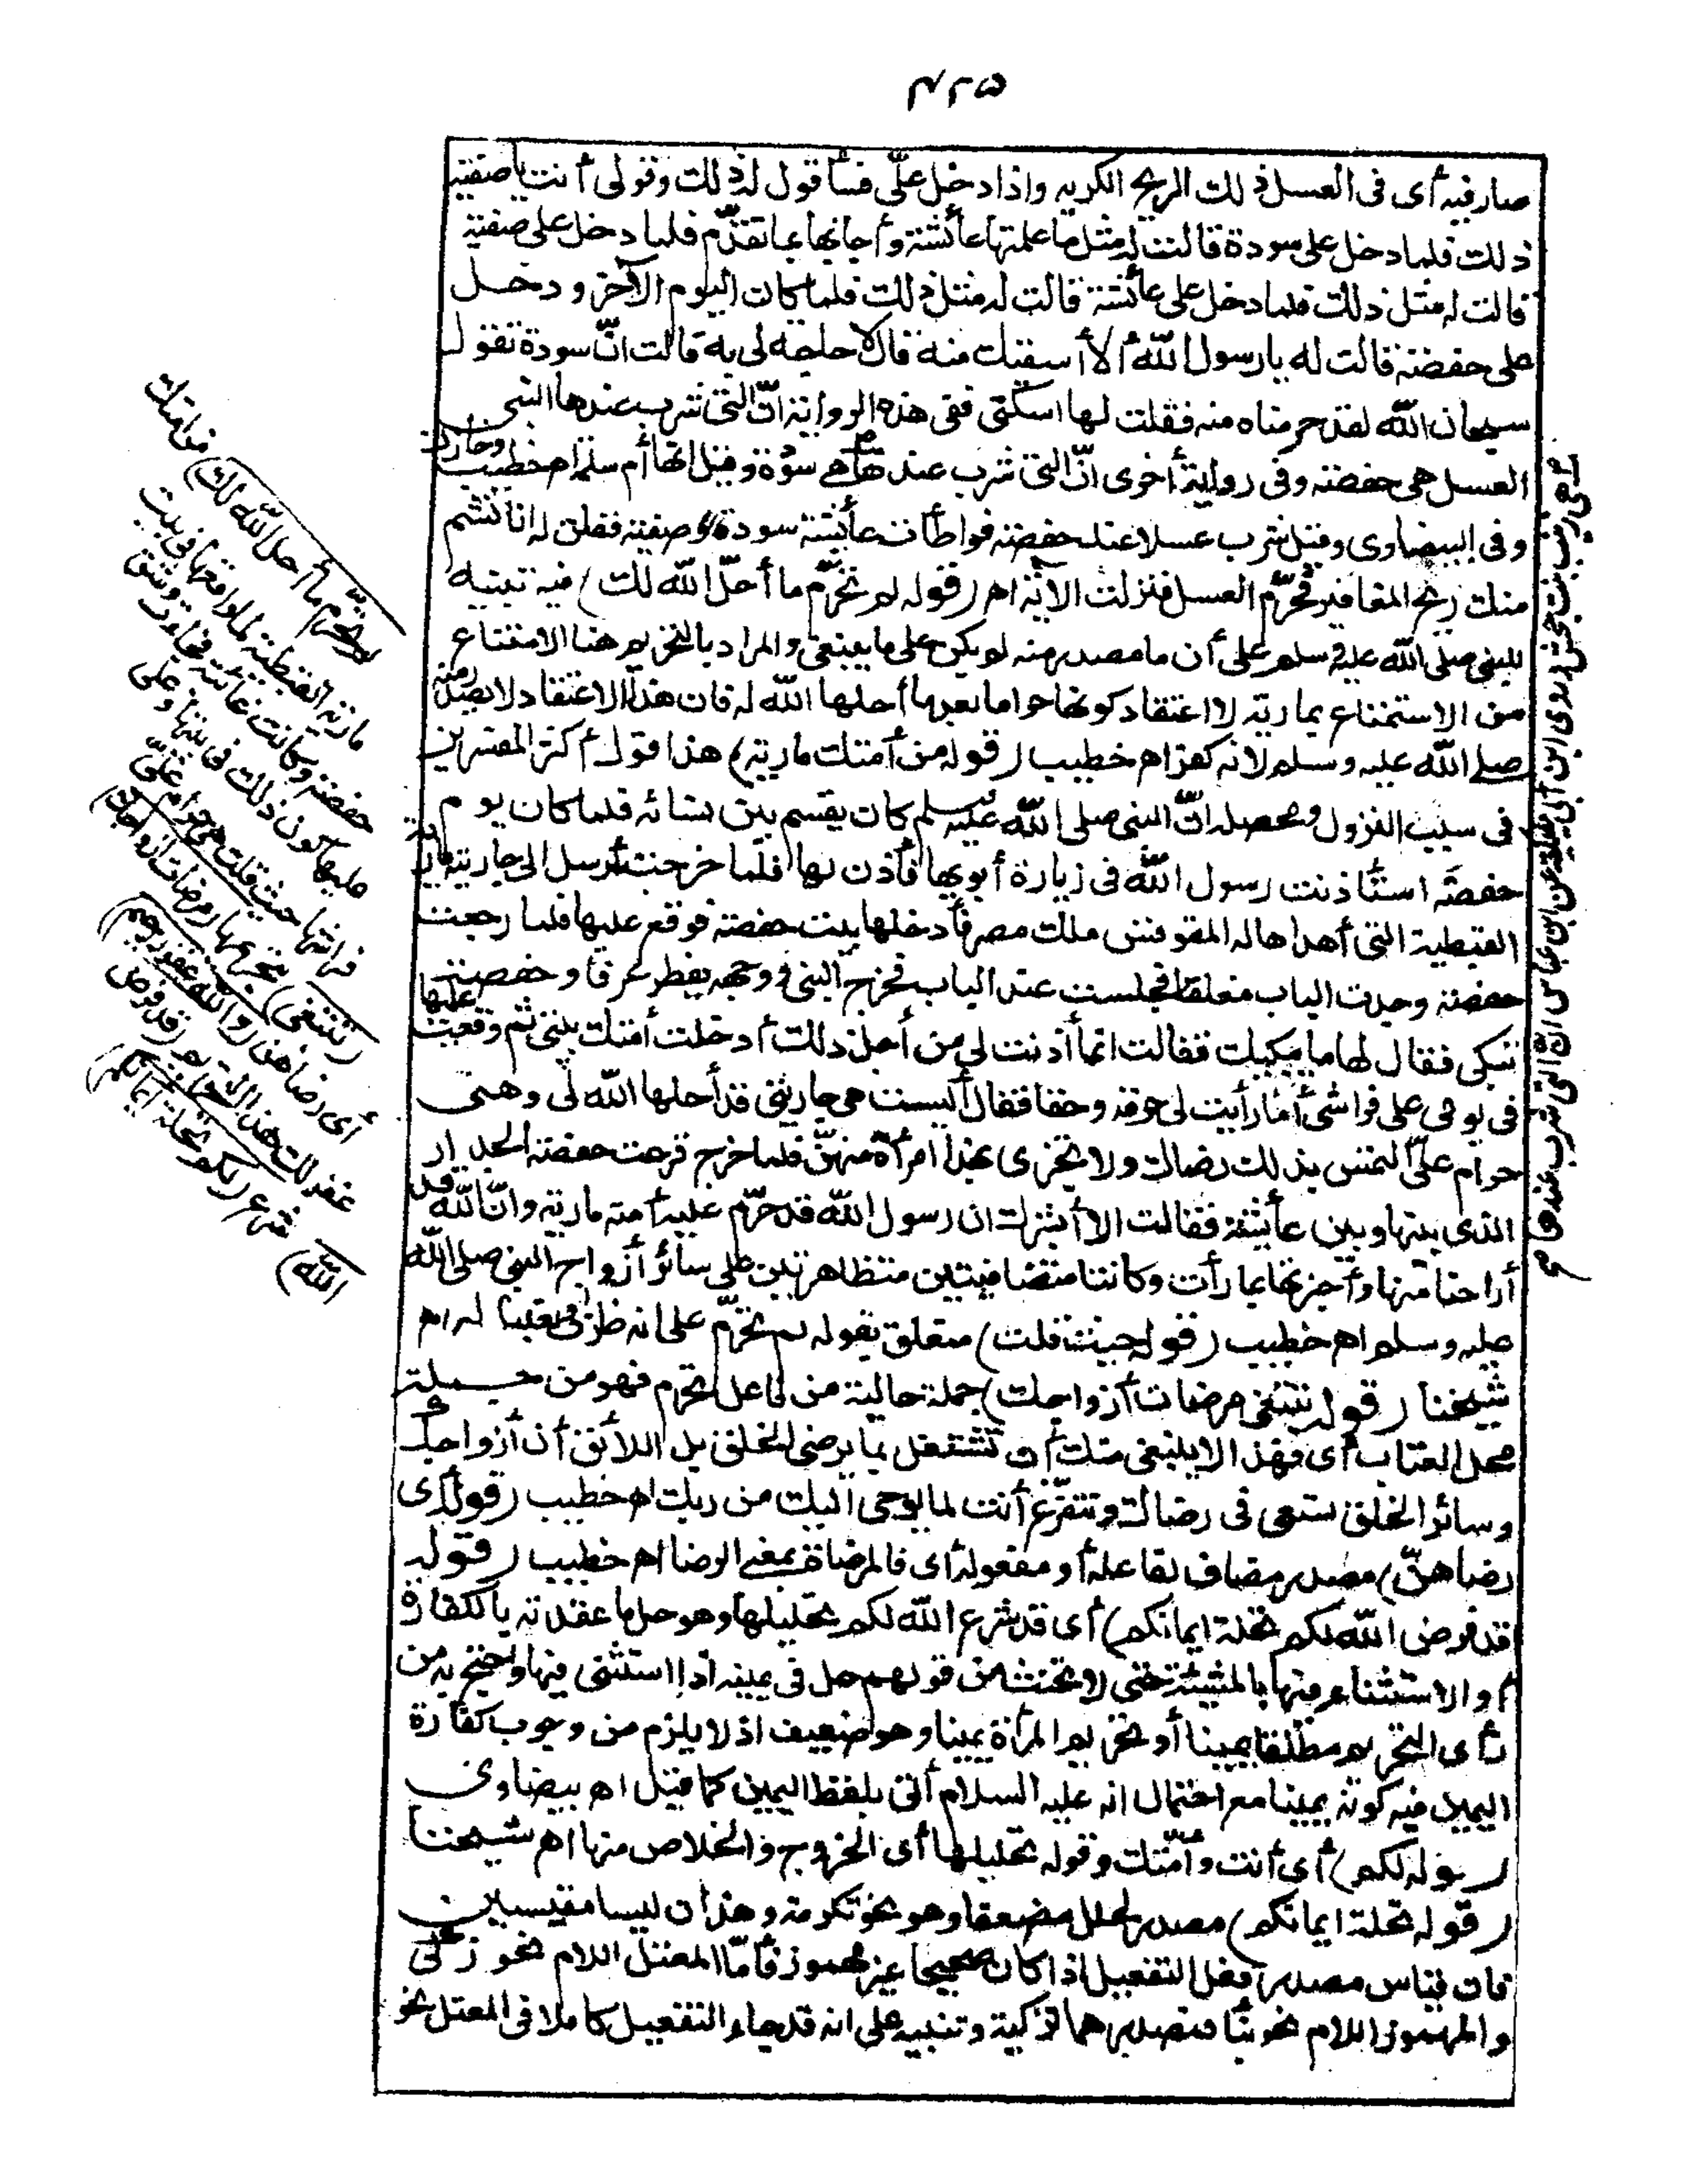 ٤٢٥
صار فيه أى فى العسل ذلك الريح الكريه واذا دخل علىّ فسأقول له ذلك وقولى أنت يا صفية
ذلك فلما دخل على سودة قالت له مثل ما علمتها عائشة وأجابها بما تقدّم فلما دخل على صفية
قالت له مثل ذلك فلما دخل على عائشة قالت له مثل ذلك فلما كان اليوم الآخر ودخل
على حفصة قالت له يا رسول الله ألا أسقيك منه قال لا حاجة لى به قالت انّ سودة تقول
سبحان الله لقد حرمناه منه فقلت لها اسكتى ففى هذه الرواية انّ التى شرب عندها النبى
العسل هى حفصة وفى رواية أخرى انّ التى شرب عندها هى سودة وقيل انها أم سلمة اه خطيب
وفى البيضاوى وقيل شرب عسلا عند حفصة فواطأت عائشة سودة وصفية فقلن له انا نشم
منك ريح المغافير فحرّم العسل فنزلت الآية اه (قوله لم تحرّم ما أحلّ الله لك) فيه تنبيه
للنبى صلى الله عليه وسلم على أن ما صدر منه لم يكن على ما ينبغى والمراد بالتحريم هنا الامتناع
من الاستمتاع بمارية لا اعتقاد كونها حراما بعد ما أحلها الله له فان هذا الاعتقاد لا يصدر منه
صلى الله عليه وسلم لانه كفر اه خطيب (قوله من أمتك مارية) هذا قول أكثر المفسرين
فى سبب النزول ومحصله انّ النبى صلى الله عليه وسلم كان يقسم بين نسائه فلما كان يوم
حفصة استأذنت رسول الله فى زيارة أبويها فأذن لها فلما خرجت أرسل الى جاريته مارية
القبطية التى أهداها له المقوقس ملك مصر فأدخلها بيت حفصة فوقع عليها فلما رجعت
حفصة وجدت الباب مغلقا فجلست عند الباب فخرج النبى ووجهه يقطر عرقا وحفصة
تبكى فقال لها ما يبكيك فقالت انما أذنت لى من أجل ذلك أدخلت أمتك بيتى ثم وقعت عليها
فى يومى على فراشى أما رأيت لى حرمة وحقا فقال أليست هى جاريتى قد أحلها الله لى وهى
حرام علىّ ألتمس بذلك رضاك ولا تخبرى بهذا امرأة منهنّ فلما خرج قرعت حفصة الجدار
الذى بينها وبين عائشة فقالت الا أبشرك ان رسول الله قد حرّم عليه أمته مارية وانّ الله قد
أراحنا منها وأخبرتها بما رأت وكانتا متصافيتين متظاهرتين على سائر أزواج النبى صلى الله
عليه وسلم اه خطيب (قوله حيث قلت) متعلق بقوله لم تحرّم على انه ظرف له اه
شيخنا (قوله تبتغى مرضات أزواجك) جملة حالية من فاعل تحرّم فهو من جملة
محل العتاب أى فهذا لا ينبغى منك أن تشتغل بما يرضى الخلق بل اللائق أن أزواجك
وسائر الخلق تسعى فى رضاك وتتفرّغ أنت لما يوحى اليك من ربك اه خطيب (قوله أى
رضاهنّ) مصدر مضاف لفاعله أو مفعوله أى فالمرضاة بمعنى الرضا اه خطيب (قوله
قد فرض الله لكم تحلة ايمانكم) أى قد شرع الله لكم تحليلها وهو حل ما عقدته بالكفارة
أو الاستثناء فيها بالمشيئة حتى لا تحنث من قولهم حل فى يمينه اذا استثنى فيها واحتج به من
رأى التحريم مطلقا يمينا أو تحريم المرأة يمينا وهو ضعيف اذ لا يلزم من وجوب كفارة
اليمين فيه كونه يمينا مع احتمال انه عليه السلام أتى بلفظ اليمين كما قيل اه بيضاوى
(قوله لكم) أى أنت وأمتك وقوله تحليلها أى الخروج والخلاص منها اه شيخنا
(قوله تحلة ايمانكم) مصدر لحلل مضعفا وهو نحو تكرمة وهذان ليسا مقيسين
فان قياس مصدر فعل التفعيل اذا كان صحيحا غير مهموز فأما المعتل اللام نحو زكى
والمهموز اللام نحو نبأ فمصدرهما تزكية وتنبيه على انه قد جاء التفعيل كاملا فى المعتل نحو
زينب بنت جحش روى ابن أبى مليكة عن ابن عباس انّ التى شرب عندها
لم تحرّم ما أحل الله لك) من أمتك
مارية القبطية لما واقعها فى بيت
حفصة وكانت غائبة فجاءت وشق
عليها كون ذلك فى بيتها وعلى
فراشها حيث قلت هى حرام علىّ
(تبتغى) بتحريمها (مرضات أزواجك)
أى رضاهن (والله غفور رحيم)
غفر لك هذا التحريم (قد فرض
الله) شرع (لكم تحلة ايمانكم)